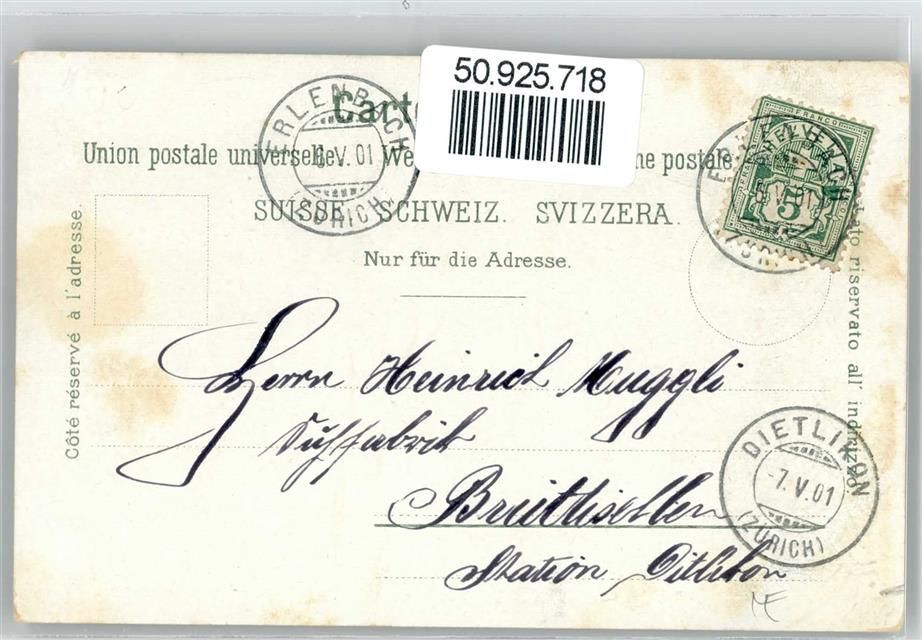 50.925.718
Carte
Union postale universelle. We me postale
SUISSE. SCHWEIZ. SVIZZERA.
Nur für die Adresse.
Côté réservé à l'adresse.
lato riservato all' indirizzo.
ERLENBACH
6.V.01
(ZÜRICH)
ERLENBACH
FRANCO
5
Herrn Heinrich Muggli
Brüttisellen
Station Ditlikon
DIETLIKON
-7.V.01
(ZÜRICH)